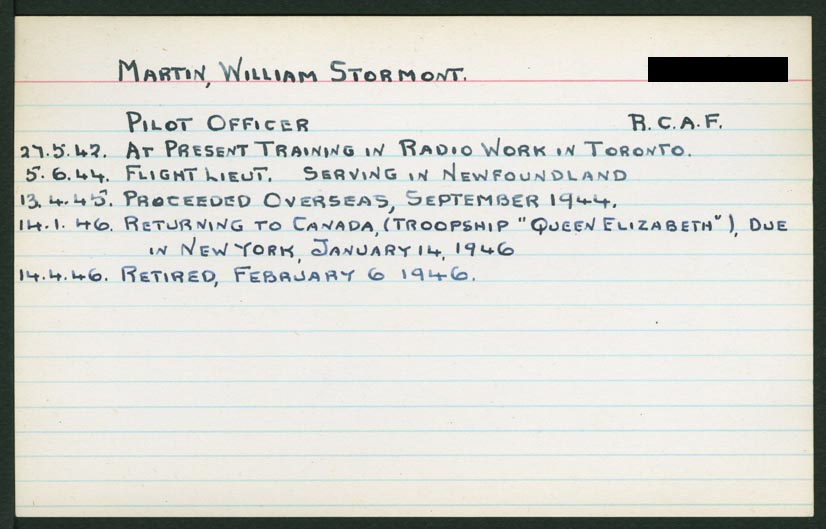 MARTIN, WILLIAM STORMONT.
PILOT OFFICER R.C.A.F.
27.5.42. AT PRESENT TRAINING IN RADIO WORK IN TORONTO.
5.6.44. FLIGHT LIEUT. SERVING IN NEWFOUNDLAND
13.4.45. PROCEEDED OVERSEAS, SEPTEMBER 1944.
14.1.46. RETURNING TO CANADA, (TROOPSHIP "QUEEN ELIZABETH"), DUE
IN NEW YORK, JANUARY 14, 1946
14.4.46. RETIRED, FEBRUARY 6 1946.